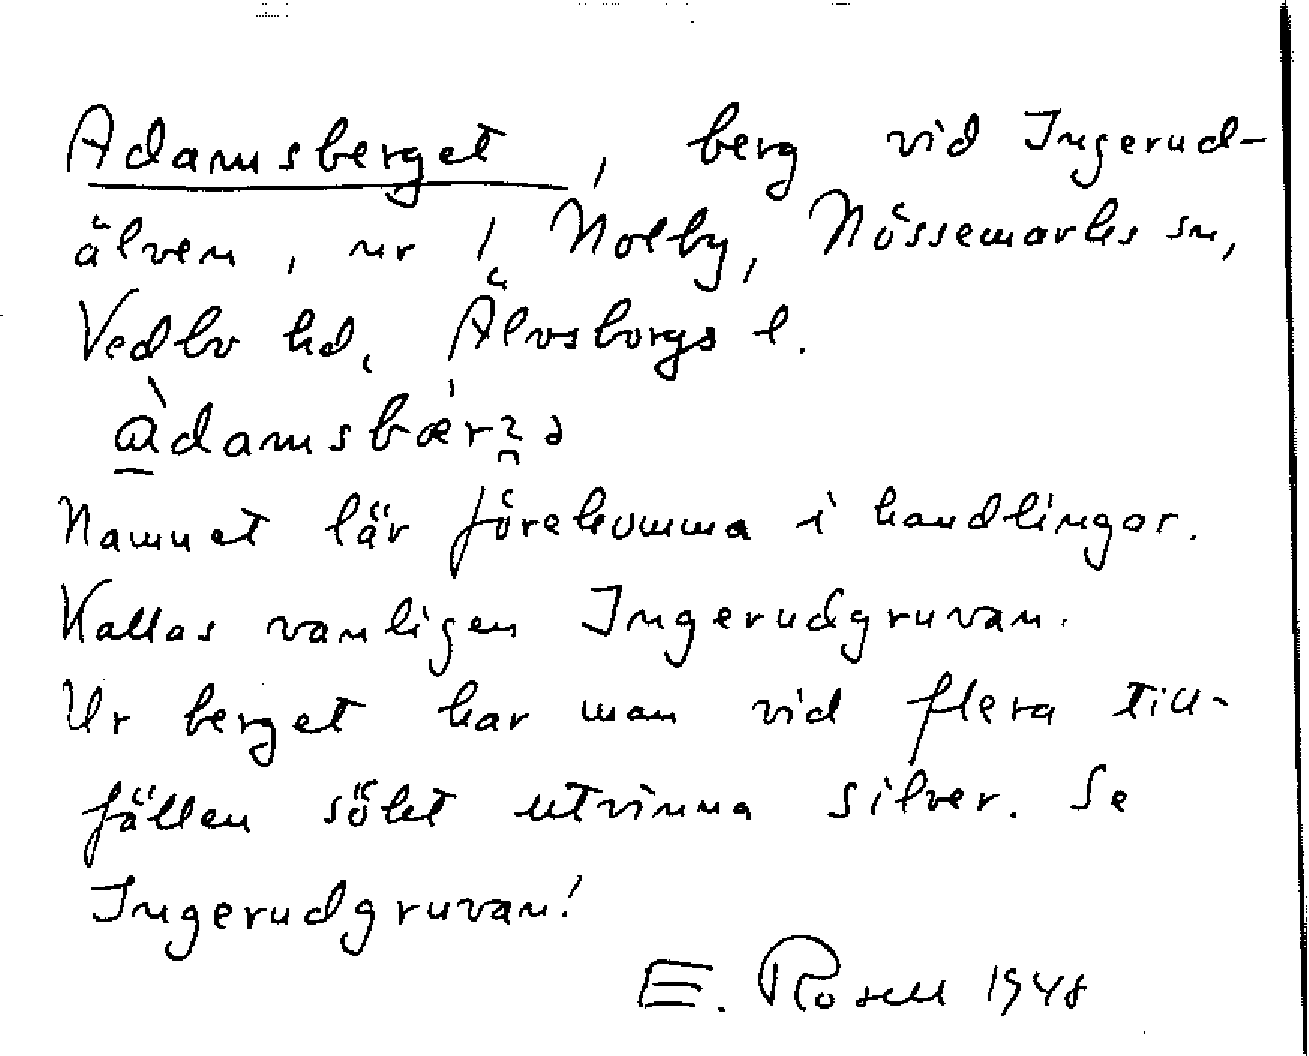 Adamsberget, berg vid Ingerud-
älven, nr 1 Nolby, Nössemarks sn,
Vedbo hd, Älvsborgs l.
Namnet lär förekomma i handlingar.
Kallas vanligen Ingerudgruvan.
Ur berget har man vid flera till-
fällen sökt utvinna silver. Se
Ingerudgruvan!
E. Rosell 1948